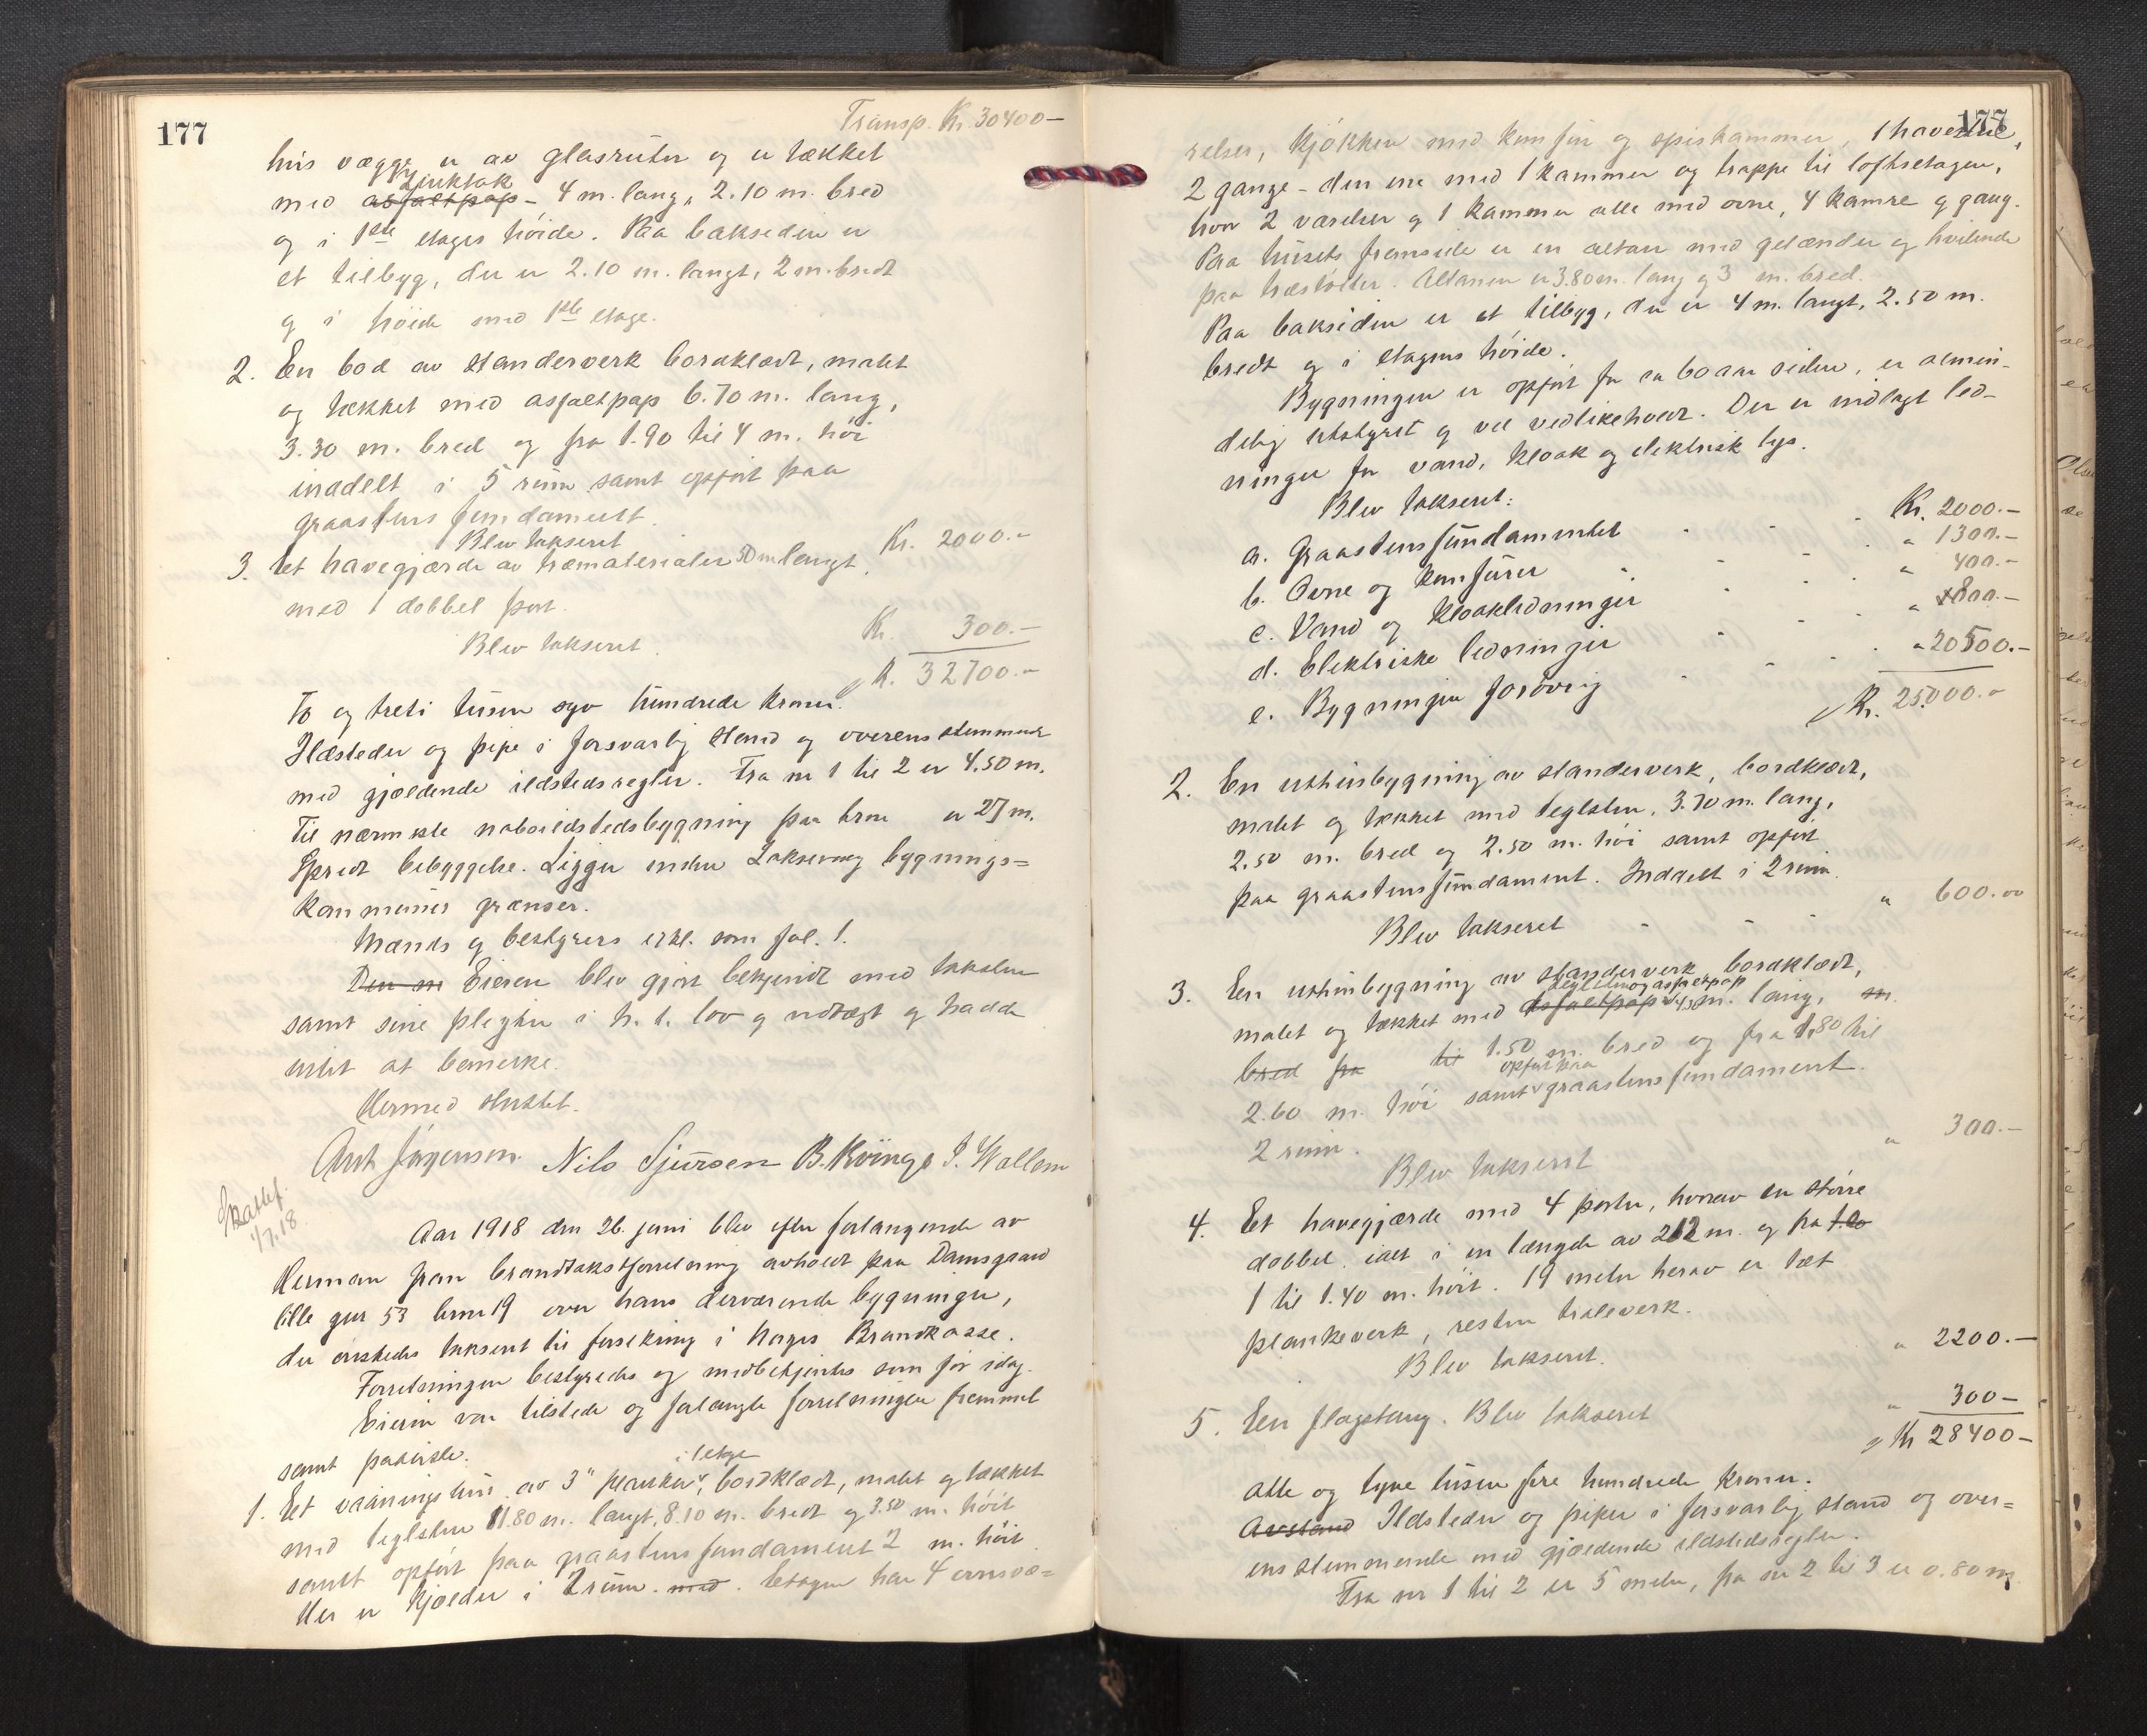 177
Transp. Kr. 30400-
hvis vægger er av glasruter og er tækket
zinktak
med asfaltpap - 4 m. lang, 2.10 m. bred
og i 1ste etages høide. Paa baksiden er
et tilbyg, der er 2.10 m. langt, 2 m. bredt
og i høide med 1ste etage.
2. En bod av standerverk bordklædt, malet
og tækket med asfaltpap 6.70 m. lang,
3.30 m. bred og fra 1.90 til 4 m. høi
inddelt i 5 rum samt opført paa
graastens fundament.
Blev takseret Kr. 2000.-
3. Et havegjærde av træmaterialer 50 m langt,
med 1 dobbel port.
Blev takseret. Kr. 300.-
Kr. 32700.-
To og treti tusen syv hundrede kroner.
Ildsteder og pipe i forsvarlig stand og overensstemmende
med gjældende ildstedsregler. Fra nr 1 til 2 er 4.50 m.
Til nærmeste naboildstedsbygning paa brnr er 27 m.
Spredt bebyggelse. Ligger inden Laksevaag bygnings=
kommunes grænser.
Mænds og bestyrers erkl. som fol. 1.
Den m Eieren blev gjort bekjendt med taksten
samt sine plegter i h. t. lov og vedtægt og hadde
intet at bemerke.
Hermed sluttet.
Ant Jørgensen. Nils Sjursen B. Kvinge J. Wallem
Skattef.
1/7.18.
Aar 1918 den 26. juni blev efter forlangende av
Herman fran brandtakstforretning avholdt paa Damsgaard
lille gnr 53 brnr 19 over hans derværende bygninger,
der ønskedes takseret til forsikring i Norges Brandkasse.
Forretningen bestyredes og medbetjentes som før idag.
Eieren var tilstede og forlangte forretningen fremmet
samt paaviste.
i 1 etage
1. Et vaaningshus av 3" planker, bordklædt, malet og tækket
med teglsten 11.80 m. langt, 8.10 m. bredt og 3.50 m. høit
samt opført paa graastens fundament 2 m. høit.
Her er kjælder i 2 rum. med. Etagen har 4 værel=
177
relser, kjøkken med komfur og spiskammer, 1 havestue,
2 gange - den ene med 1 kammer og trappe til loftsetagen,
hvor 2 værelser og 1 kammer alle med ovne, 4 kamre og gang.
Paa husets fremside er en altan med gelænder og hvilende
paa træstolter. Altanen er 3.80 m. lang og 3 m. bred.
Paa baksiden er et tilbyg, der er 4 m. langt, 2.50 m.
bredt og i etagens høide.
Bygningen er opført for ca 60 aar siden, er almin-
delig utstyret og vel vedlikeholdt. Der er indlagt led-
ninger for vand, kloak og elektrisk lys.
Blev takseret:
a. Graastensfundamentet Kr. 2000.-
b. Ovne og komfurer " 1300.-
c. Vand og kloakledninger " 400.-
d. Elektriske ledninger " 800.-
e. Bygningen forøvrig " 20500.-
Kr. 25000.-
2. En uthusbygning av standerverk, bordklædt,
malet og tækket med teglsten, 3.70 m. lang,
2.50 m. bred og 2.50 m. høi samt opført
paa graastensfundament. Inddelt i 2 rum.
Blev takseret " 600.00
3. En uthusbygning av standerverk, bordklædt,
teglsten og asfaltpap
malet og tækket med asfaltpap 4.30 m. lang, m.
bred fra til 1.50 m. bred og fra 1.80 til
opført paa
2.60 m. høi samt graastens fundament.
2 rum.
Blev takseret " 300.-
4. Et havegjærde med 4 porter, hvorav en større
dobbel, ialt i en længde av 212 m. og fra 1.20
1 til 1.40 m. høit. 19 meter herav er tæt
plankeverk, resten traleverk.
Blev takseret. " 2200.-
5. En flagstang. Blev takseret " 300-
Kr 28400-
Otte og tyve tusen fire hundrede kroner.
Avstand Ildsteder og piper i forsvarlig stand og over=
ensstemmende med gjældende ildstedsregler.
Fra nr 1 til 2 er 5 meter, fra nr 2 til 3 er 0.80 m.